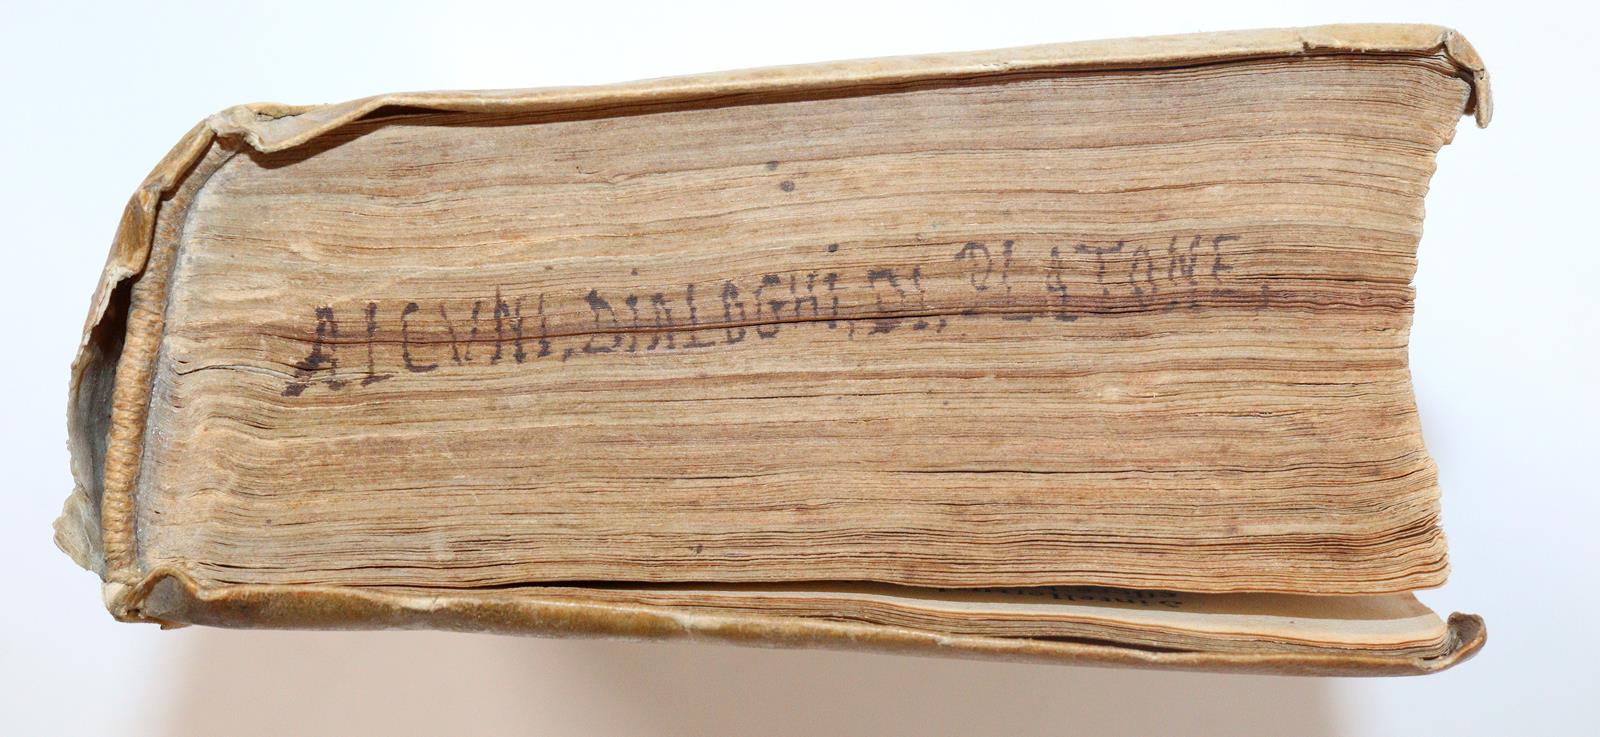 ALCVNI, DiALOGHi, DI, PLATONE,